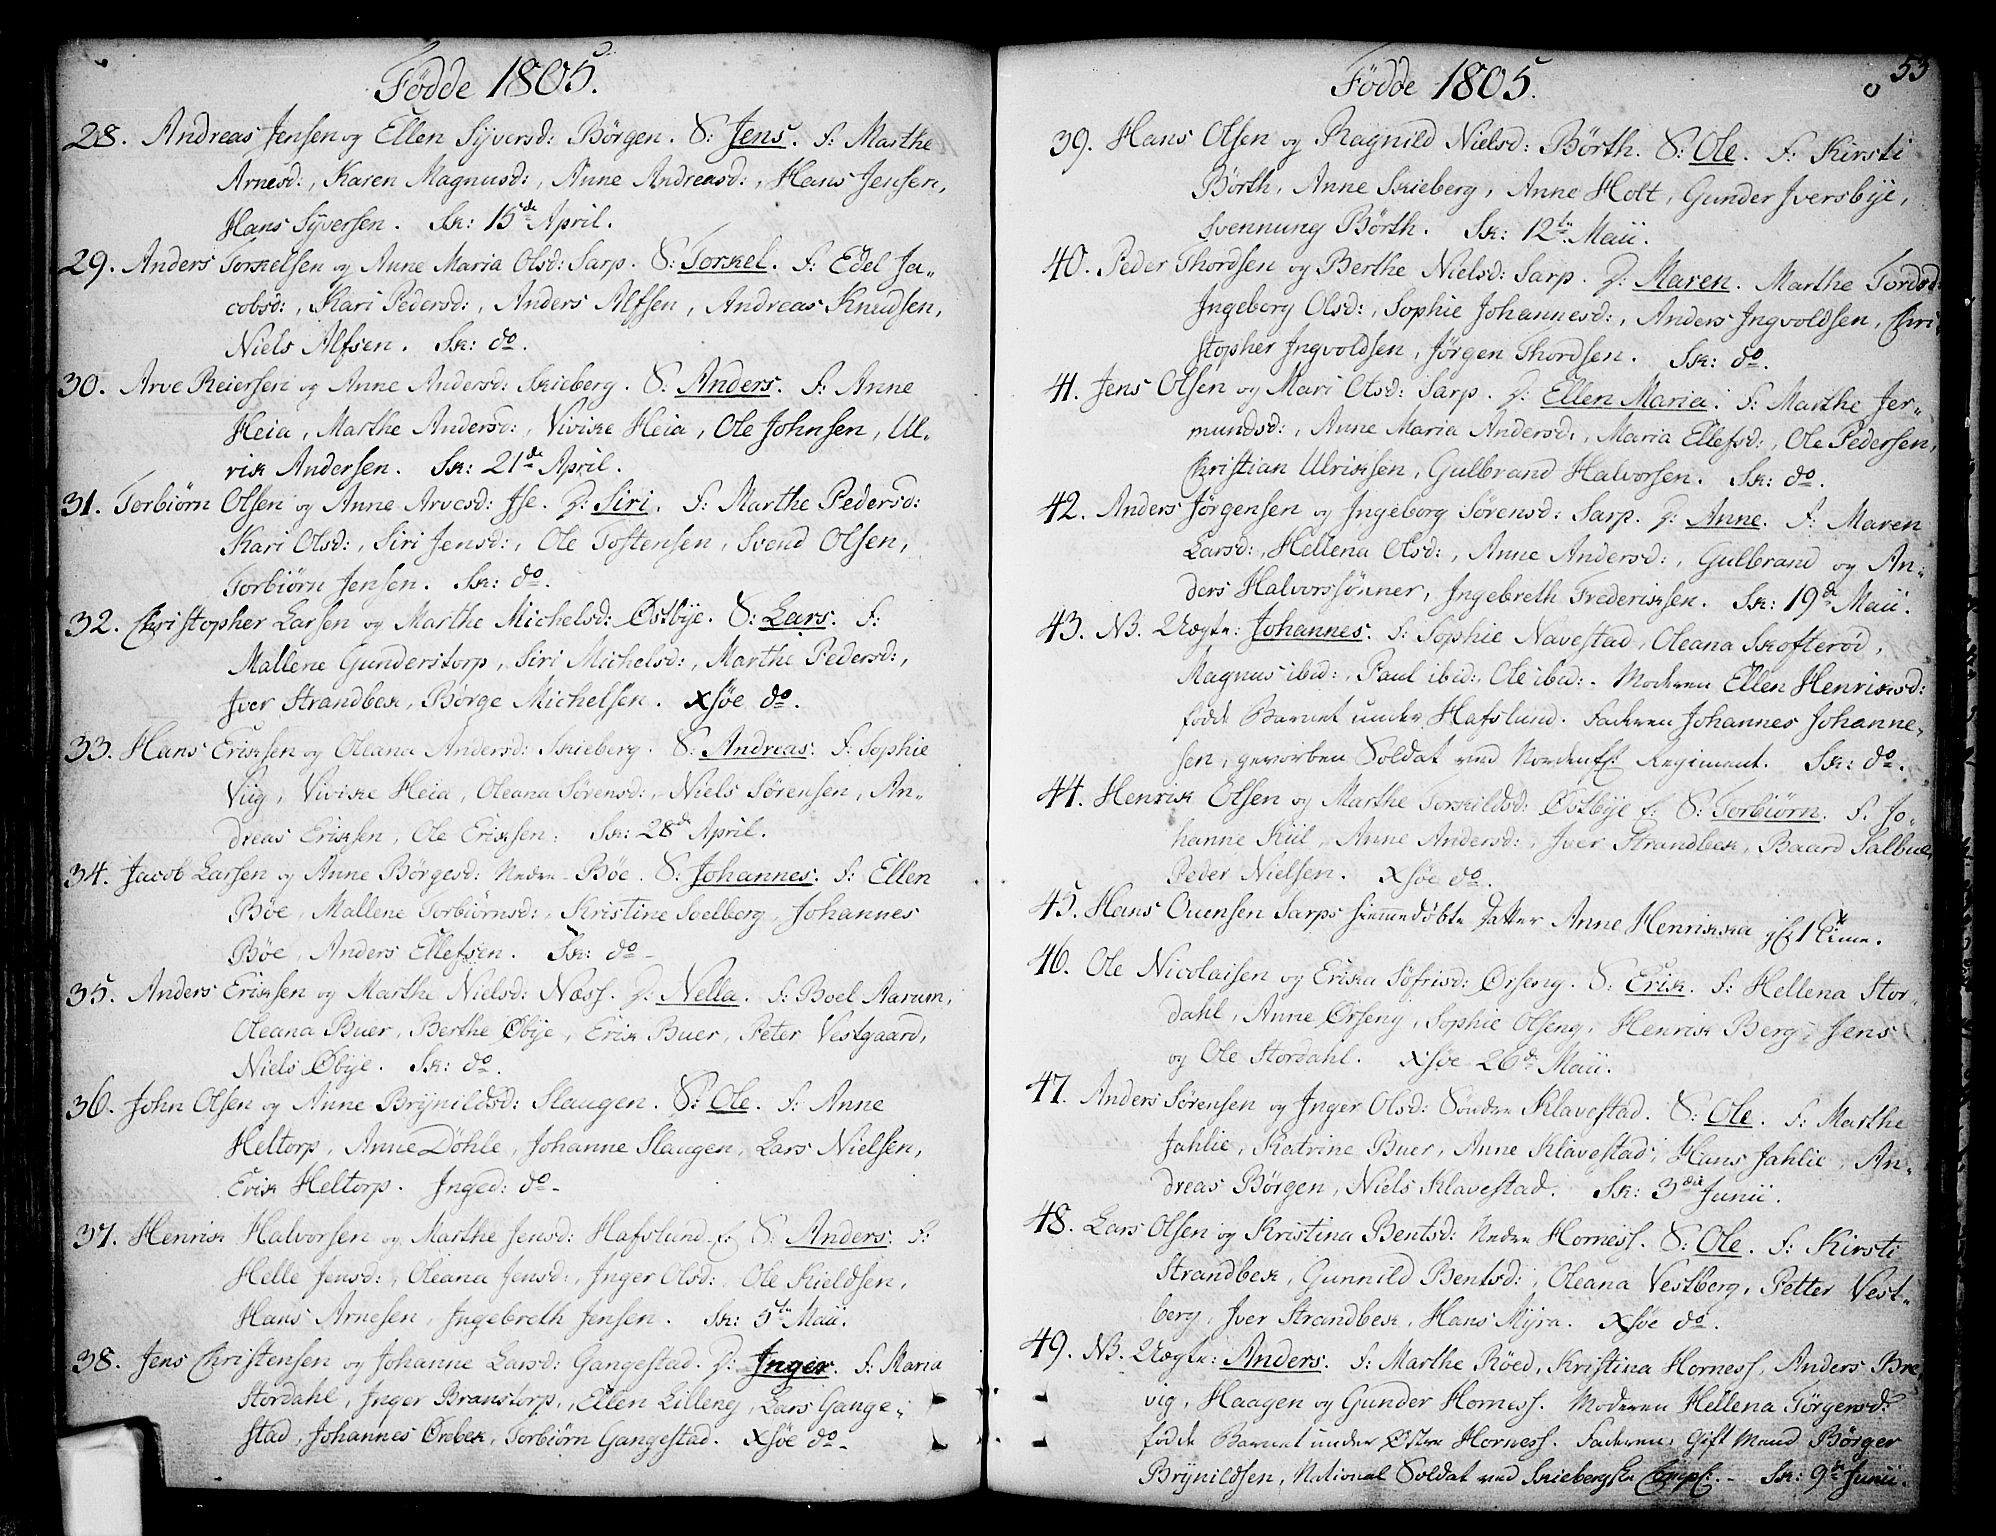 Fødde 1805.
28. Andreas Jensen og Ellen Syversd: Börgen. S: Jens. f: Marthe
Arnesd:, Karen Magnusd:, Anne Andreasd:, Hans Jensen,
Hans Syversen. Sk: 15de April.
29. Anders Torkelsen og Anne Maria Olsd: Sarp. S: Torkel. f: Edel Ja-
cobsd:, Kari Pedersd:, Anders Alfsen, Andreas Knudsen,
Niels Alfsen. Sk: do.
30. Arve Reiersen og Anne Andersd: Skieberg. S: Anders. f: Anne
Heia, Marthe Andersd:, Vivike Heia, Ole Johnsen, Ul-
rik Andersen. Sk: 21de April.
31. Torbiørn Olsen og Anne Arvesd: Ise. D: Siri. f: Marthe Pedersd:
Kari Olsd:, Siri Jensd:, Ole Tostensen, Svend Olsen,
Torbiørn Jensen. Sk: do.
32. Christopher Larsen og Marthe Michelsd: Østbye. S: Lars. f:
Mallene Gunderstorp, Siri Michelsd:, Marthe Pedersd:,
Iver Strandbek, Børge Michelsen. Xsøe do.
33. Hans Eriksen og Oleana Andersd: Skieberg. S: Andreas. f: Sophie
Viig, Vivike Heia, Oleana Sørensd:, Niels Sørensen, An-
dreas Eriksen, Ole Eriksen. Sk: 28de April.
34. Jacob Larsen og Anne Børgesd: Nedre-Bøe. S: Johannes. f: Ellen
Bøe, Mallene Torbiørnsd:, Kristine Soelberg, Johannes
Bøe, Anders Ellefsen. Sk: do -
35. Anders Eriksen og Marthe Nielsd: Næss. D: Nella. f: Boel Aarum,
Oleana Buer, Berthe Øbye, Erik Buer, Peter Vestgaard,
Niels Øbye. Sk: do.
36. John Olsen og Anne Brynildsd: Slaugen. S: Ole. f: Anne
Heltorp, Anne Döhle, Johanne Slaugen, Lars Nielsen,
Erik Heltorp. Inged: do -
37. Henrik Halvorsen og Marthe Jensd: Hafslund. f: S: Anders. f:
Helle Jensd:, Oleana Jensd:, Inger Olsd:, Ole Kieldsen,
Hans Arnesen, Ingebreth Jensen. Sk: 5te Maii.
38. Jens Christensen og Johanne Larsd: Gangestad. D: Inger. f: Maria
Stordahl, Inger Branstorp, Ellen Lilleng, Lars Gange-
stad, Johannes Ørebek, Torbiørn Gangestad. Xsøe do -
53
Fødde 1805.
39. Hans Olsen og Ragnild Nielsd: Börth. S: Ole. f: Kirsti
Börth, Anne Skieberg, Anne Holt, Gunder Iversbye,
Svennung Börth. Sk: 12te Maii.
40. Peder Thordsen og Berthe Nielsd: Sarp. D: Maren. Marthe Tordsd:
Ingeborg Olsd:, Sophie Johannesd:, Anders Ingvoldsen, Chri
stopher Ingvoldsen, Jörgen Thordsen. Sk: do.
41. Jens Olsen og Mari Olsd: Sarp. D: Ellen Maria. f: Marthe Jer-
mundsd:, Anne Maria Andersd:, Maria Ellefsd:, Ole Pedersen,
Christian Ulriksen, Gulbrand Halvorsen. Sk: do.
42. Anders Jörgensen og Ingeborg Sörensd: Sarp. D: Anne. f: Maren
Larsd:, Hellena Olsd:, Anne Andersd:, Gulbrand og An-
ders Halvorssønner, Ingebreth Frederiksen. Sk: 19de Maii.
43. NB. Uægte: Johannes. f: Sophie Navestad, Oleana Skofterød,
Magnus ibid:, Paul ibid:, Ole ibid:. Moderen Ellen Henriksd:
fødde Barnet under Hafslund. Faderen Johannes Johanne-
sen, gevorben Soldat ved Nordenfj: Regiment. Sk: do.
44. Henrik Olsen og Marthe Torkildsd: Østbye f: S: Torbiørn. f. Jo-
hanne Kiil, Anne Andersd:, Iver Strandbek, Baard Salbue,
Peder Nielsen. Xsøe do.
45. Hans Ovensen Sarps hiemmedøbte Datter Anne Henrikka
46. Ole Nicolaisen og Erika Söfrisd: Örseng. S: Erik. f: Hellena Stor-
dahl, Anne Ørseng, Sophie Olseng, Henrik Berg, Jens
og Ole Stordahl. Xsøe 26de Maii.
47. Anders Sörensen og Inger Olsd: Söndre Klavestad. S: Ole. f: Marthe
Jahlie, Katrine Buer, Anne Klavestad, Hans Jahlie, An-
dreas Börgen, Niels Klavestad. Sk: 3die Junii.
48. Lars Olsen og Kristina Bentsd: Nedre Horness. S: Ole. f: Kirsti
Strandbek, Gunnild Bentsd:, Oleana Vestberg, Petter Vest-
berg, Iver Strandbek, Hans Myra. Xsøe do.
49. NB. Uægte: Anders. f: Marthe Röed, Kristina Horness, Anders Bre
vig, Haagen og Gunder Horness. Moderen Hellena Törgersd:
fødde Barnet under Østre Horness. Faderen: Gift Mand Börger
Brynildsen, National Soldat ved Skiebergske Comp: - Sk: 9de Junii.